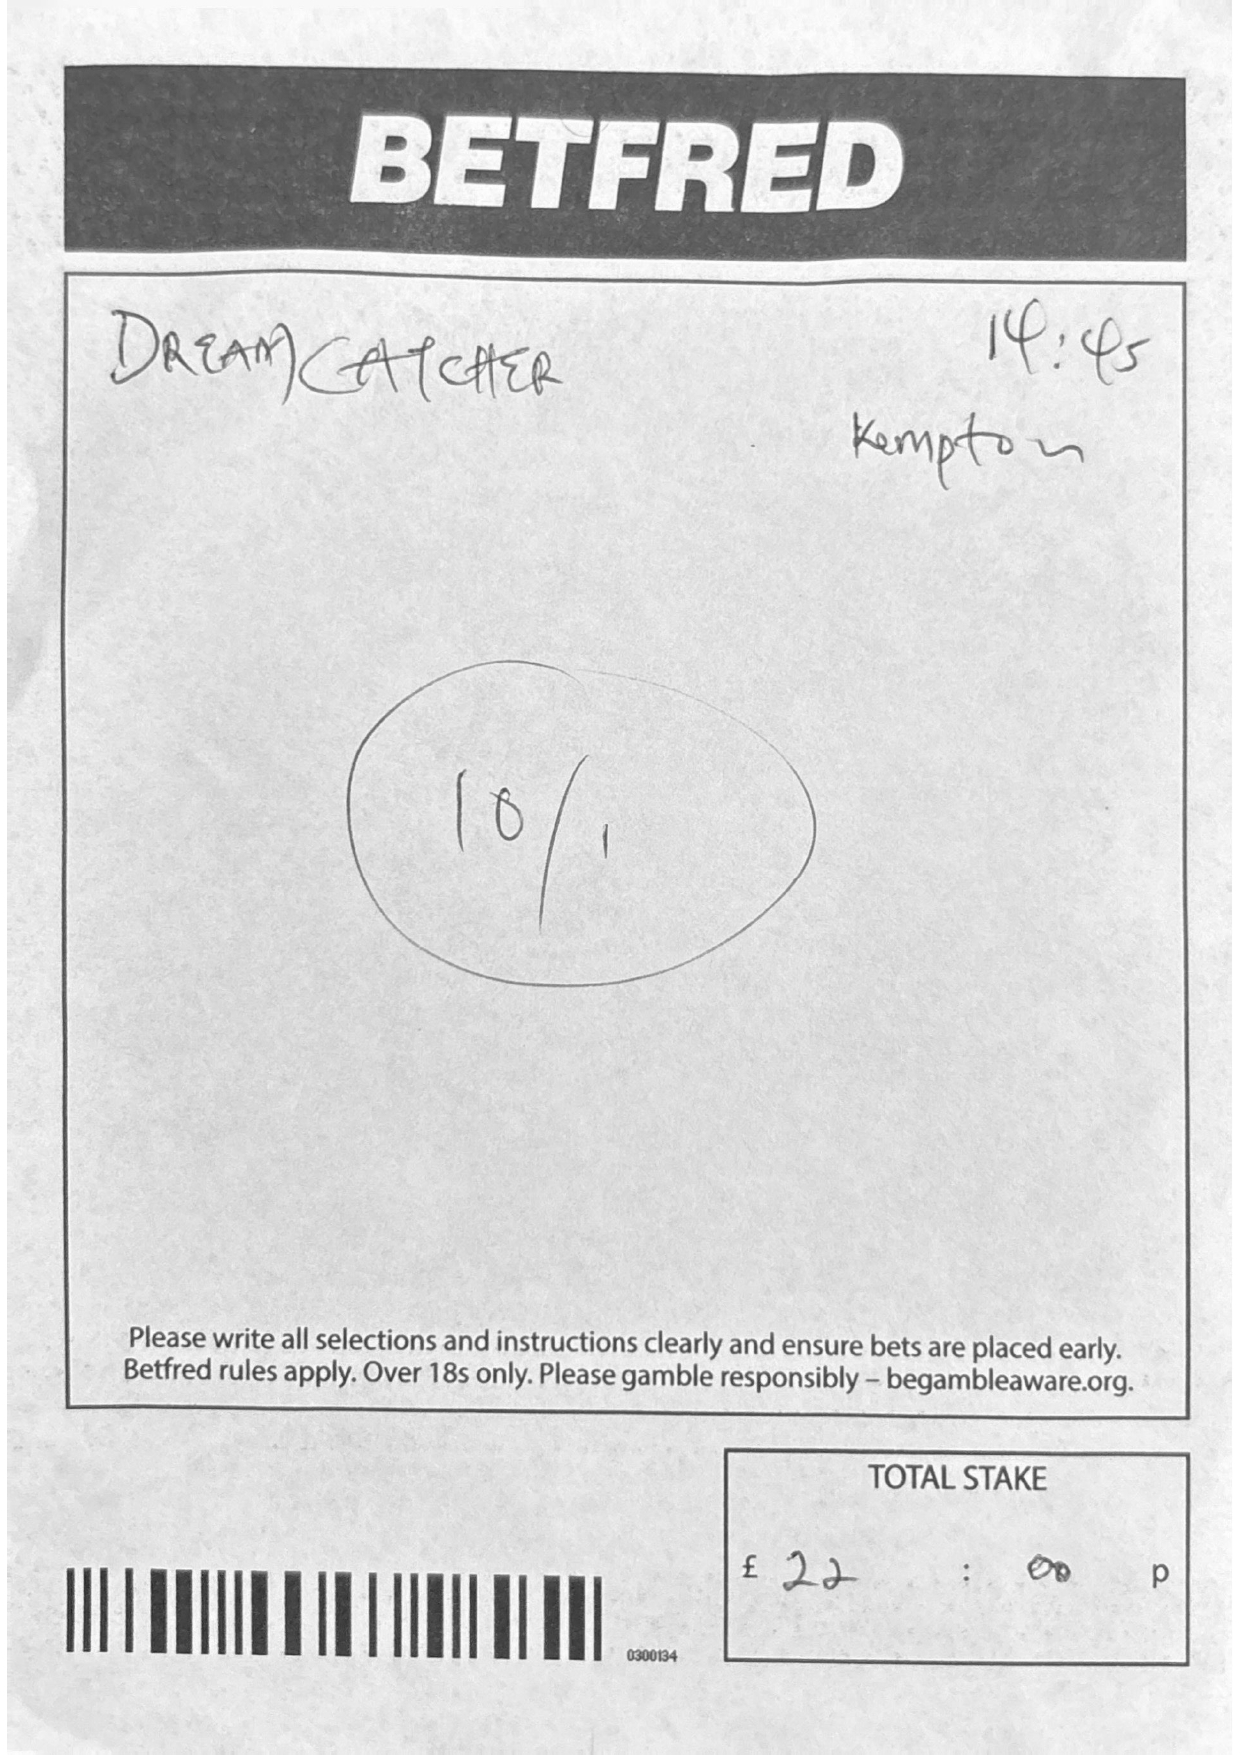 BETFRED
DREAMCATCHER
14:45
Kempton
10/1
Please write all selections and instructions clearly and ensure bets are placed early.
Betfred rules apply. Over 18s only. Please gamble responsibly – begambleaware.org.
TOTAL STAKE
£ 22 : 00 p
0300134